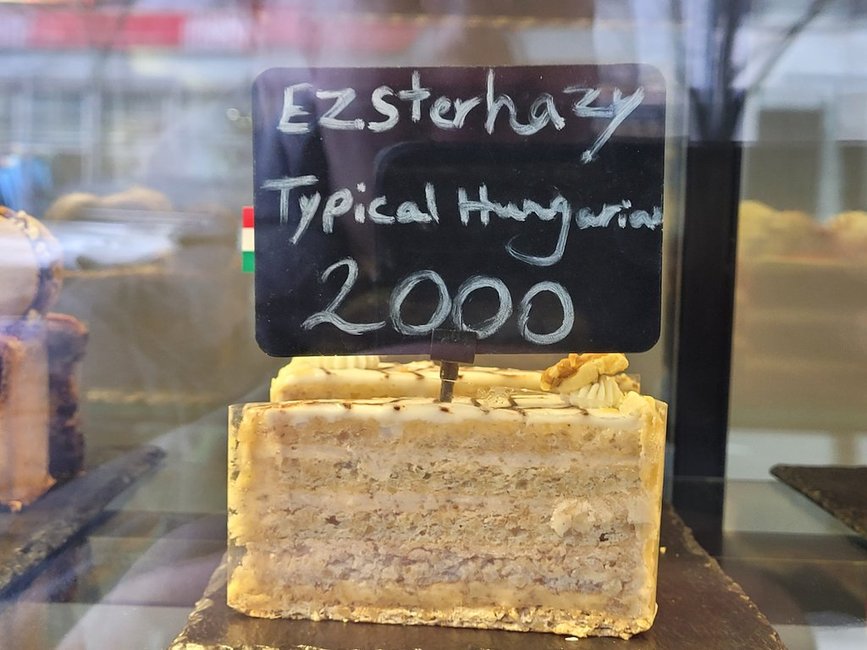 Ezsterhazy
Typical Hungarian
2000